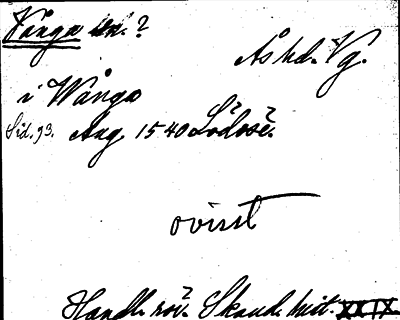 Vånga sn.?
Ås hd. Vg.
i Wånga
Sid. 93. Aug. 1540 Lödöse.
ovisst
Handl. rör. Skand. hist. XXIX.